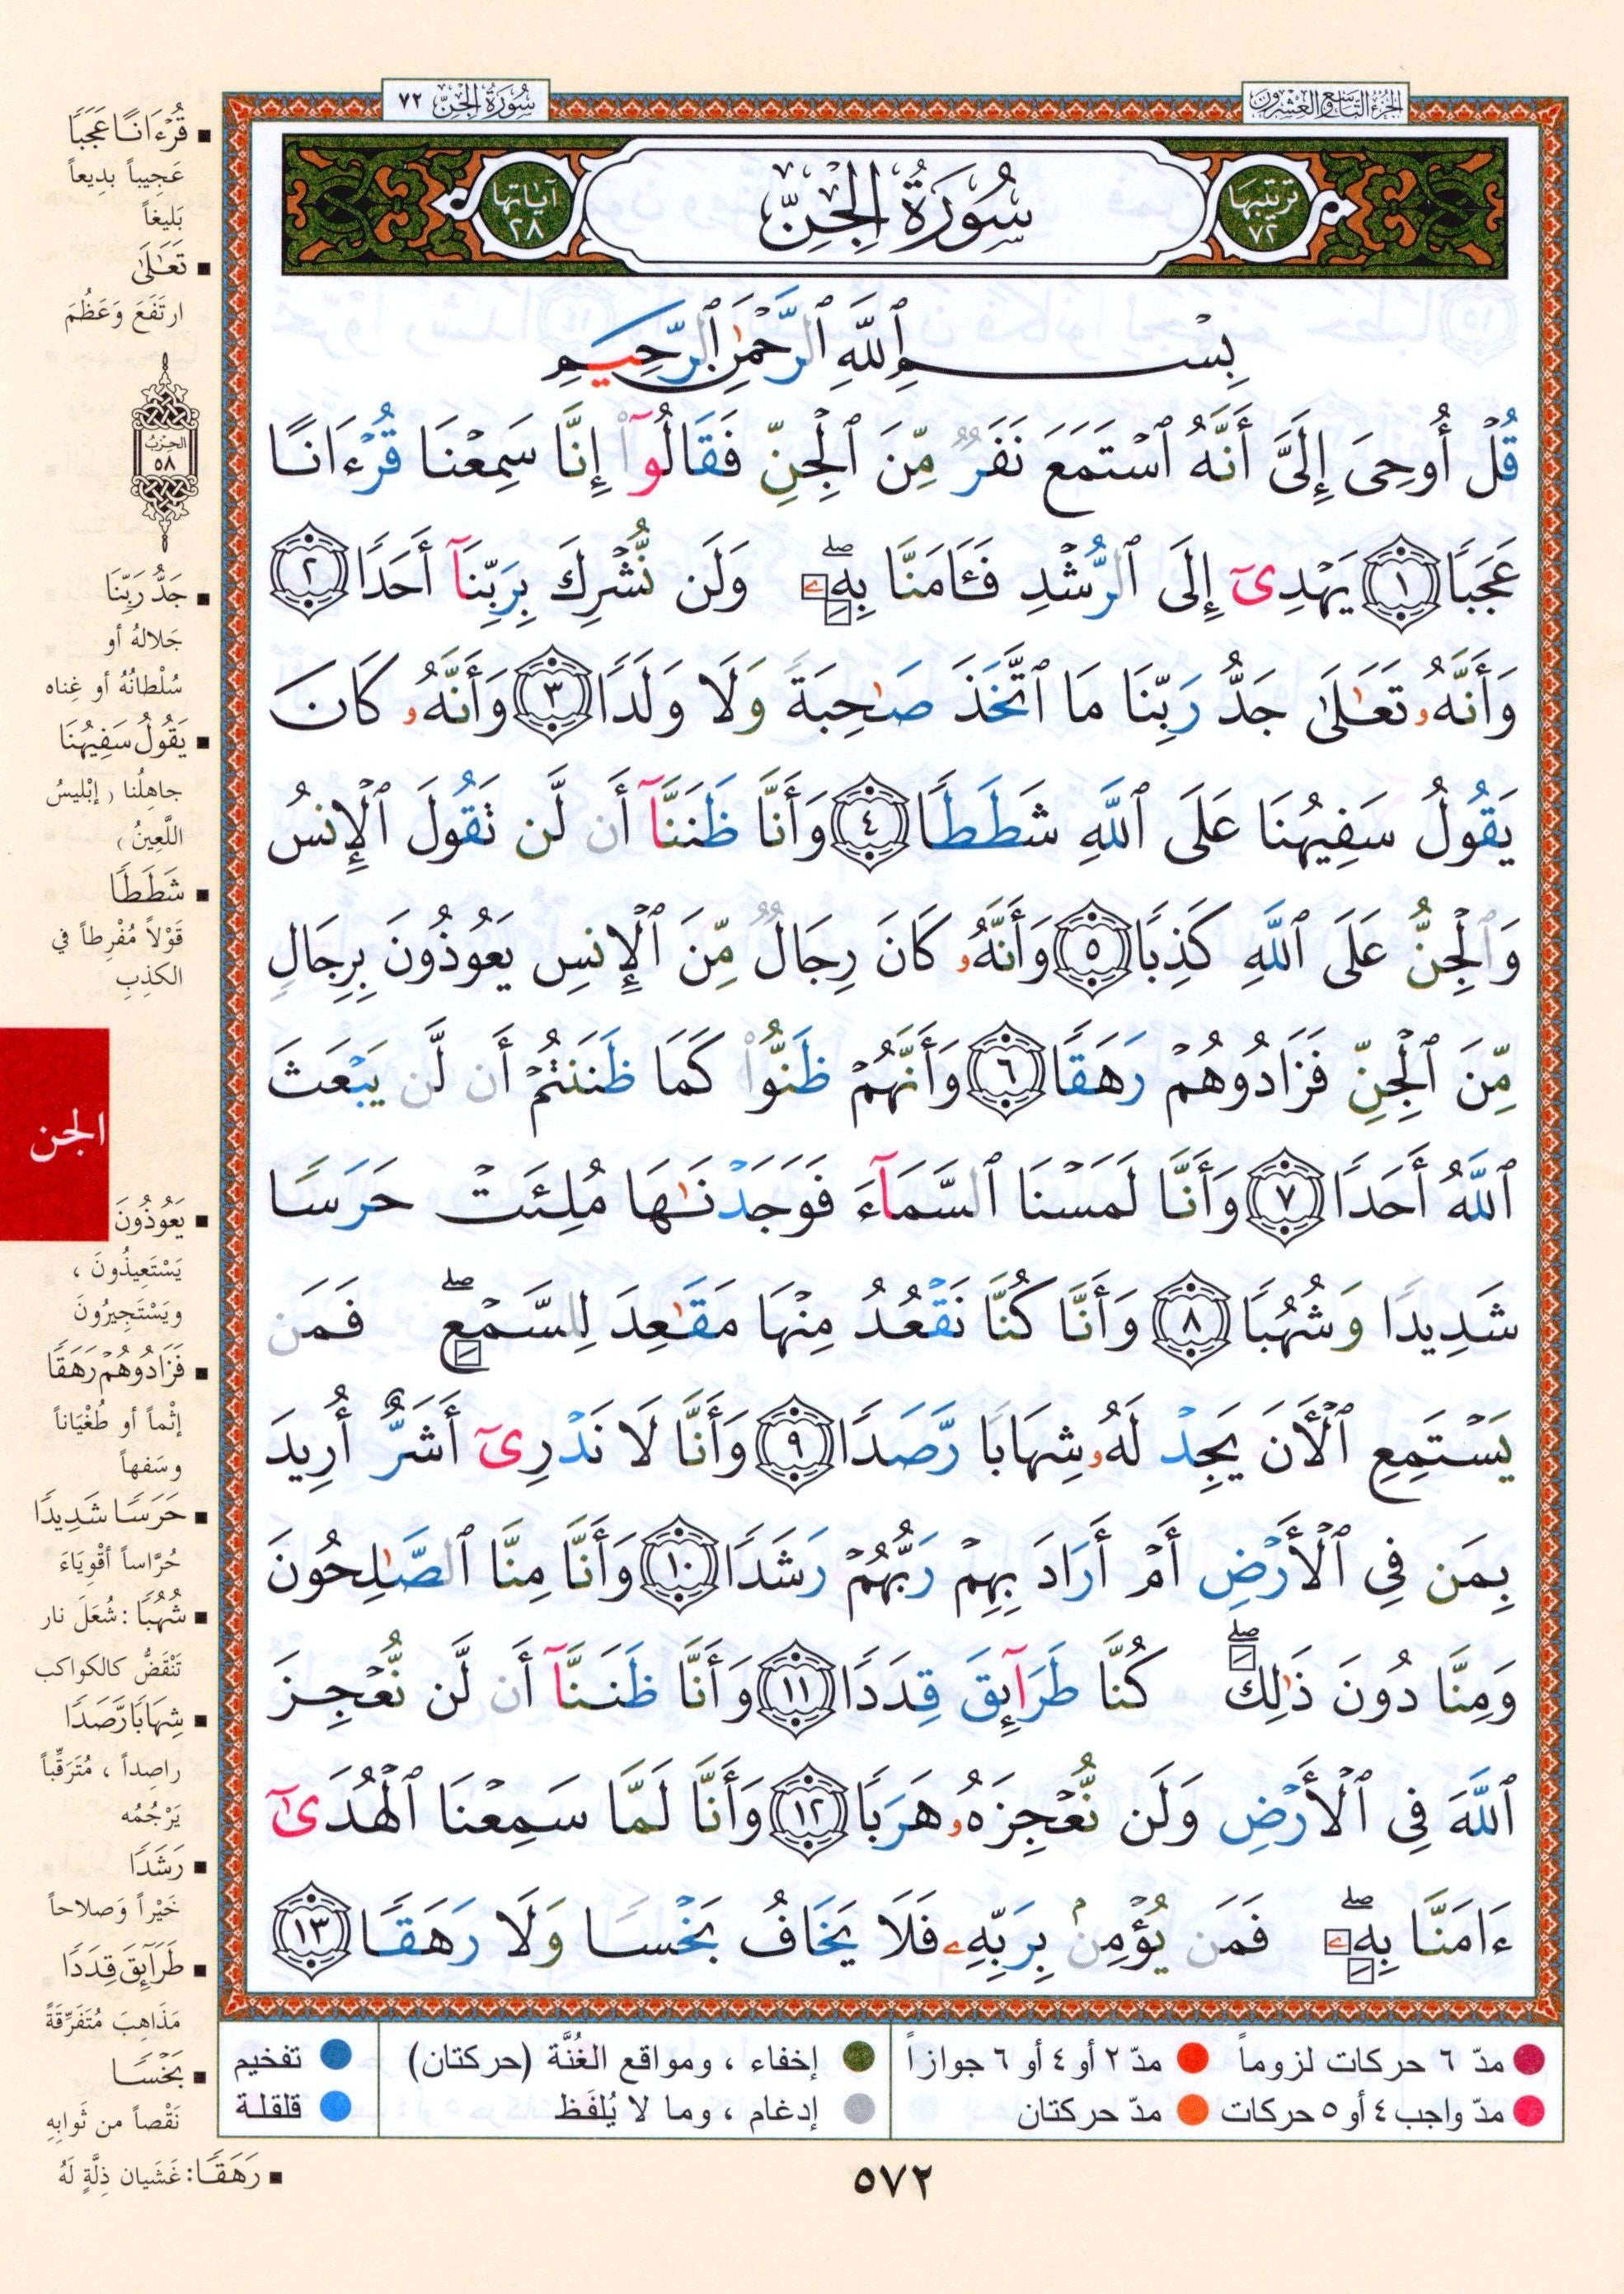 سُورَةُ الجِنّ ٧٢
الجُزءُ التَّاسِعُ وَالعِشْرُون
ترتيبها ٧٢
سُورَةُ الجِنِّ
آياتها ٢٨
بِسْمِ ٱللَّهِ ٱلرَّحْمَٰنِ ٱلرَّحِيمِ
قُلْ أُوحِىَ إِلَىَّ أَنَّهُ ٱسْتَمَعَ نَفَرٌ مِّنَ ٱلْجِنِّ فَقَالُوٓا۟ إِنَّا سَمِعْنَا قُرْءَانًا
عَجَبًا ١ يَهْدِىٓ إِلَى ٱلرُّشْدِ فَـَٔامَنَّا بِهِۦ ۖ وَلَن نُّشْرِكَ بِرَبِّنَآ أَحَدًا ٢
وَأَنَّهُۥ تَعَٰلَىٰ جَدُّ رَبِّنَا مَا ٱتَّخَذَ صَٰحِبَةً وَلَا وَلَدًا ٣ وَأَنَّهُۥ كَانَ
يَقُولُ سَفِيهُنَا عَلَى ٱللَّهِ شَطَطًا ٤ وَأَنَّا ظَنَنَّآ أَن لَّن تَقُولَ ٱلْإِنسُ
وَٱلْجِنُّ عَلَى ٱللَّهِ كَذِبًا ٥ وَأَنَّهُۥ كَانَ رِجَالٌ مِّنَ ٱلْإِنسِ يَعُوذُونَ بِرِجَالٍ
مِّنَ ٱلْجِنِّ فَزَادُوهُمْ رَهَقًا ٦ وَأَنَّهُمْ ظَنُّوا۟ كَمَا ظَنَنتُمْ أَن لَّن يَبْعَثَ
ٱللَّهُ أَحَدًا ٧ وَأَنَّا لَمَسْنَا ٱلسَّمَآءَ فَوَجَدْنَٰهَا مُلِئَتْ حَرَسًا
شَدِيدًا وَشُهُبًا ٨ وَأَنَّا كُنَّا نَقْعُدُ مِنْهَا مَقَٰعِدَ لِلسَّمْعِ ۖ فَمَن
يَسْتَمِعِ ٱلْـَٔانَ يَجِدْ لَهُۥ شِهَابًا رَّصَدًا ٩ وَأَنَّا لَا نَدْرِىٓ أَشَرٌّ أُرِيدَ
بِمَن فِى ٱلْأَرْضِ أَمْ أَرَادَ بِهِمْ رَبُّهُمْ رَشَدًا ١٠ وَأَنَّا مِنَّا ٱلصَّٰلِحُونَ
وَمِنَّا دُونَ ذَٰلِكَ ۖ كُنَّا طَرَآئِقَ قِدَدًا ١١ وَأَنَّا ظَنَنَّآ أَن لَّن نُّعْجِزَ
ٱللَّهَ فِى ٱلْأَرْضِ وَلَن نُّعْجِزَهُۥ هَرَبًا ١٢ وَأَنَّا لَمَّا سَمِعْنَا ٱلْهُدَىٰٓ
ءَامَنَّا بِهِۦ ۖ فَمَن يُؤْمِنۢ بِرَبِّهِۦ فَلَا يَخَافُ بَخْسًا وَلَا رَهَقًا ١٣
■ قُرْءَانًا عَجَبًا
عَجِيباً بدِيعاً
بَليغاً
■ تَعَٰلَىٰ
ارتَفَعَ وَعَظُمَ
الحِزبُ
٥٨
■ جَدُّ رَبِّنَا
جَلالهُ أو
سُلْطانُهُ أو غِناه
■ يَقُولُ سَفِيهُنَا
جاهِلُنا ( إبْليسُ
اللَّعِينُ )
■ شَطَطًا
قَوْلاً مُفْرِطاً في
الكَذِبِ
الجن
■ يَعُوذُونَ
يَسْتَعِيذُونَ ،
ويَسْتَجِيرُونَ
■ فَزَادُوهُمْ رَهَقًا
إثْماً أو طُغْيَاناً
وسَفهاً
■ حَرَسًا شَدِيدًا
حُرَّاساً أقْوِيَاءَ
■ شُهُبًا : شُعَلَ نار
تَنْقَضُّ كالكواكب
■ شِهَابًا رَّصَدًا
راصِداً ، مُتَرَقِّباً
يَرْجُمُه
■ رَشَدًا
خَيْراً وَصلاحاً
■ طَرَآئِقَ قِدَدًا
مَذَاهِبَ مُتَفَرِّقَةً
■ بَخْسًا
نَقْصاً من ثَوابِهِ
■ رَهَقًا: غَشَيان ذِلَّةٍ لَهُ
مدّ ٦ حركات لزوماً مدّ ٢ أو ٤ أو ٦ جوازاً إخفاء ، ومواقع الغُنَّة (حركتان) تفخيم
مدّ واجب ٤ أو ٥ حركات مدّ حركتان إدغام ، وما لا يُلفَظ قلقلة
٥٧٢